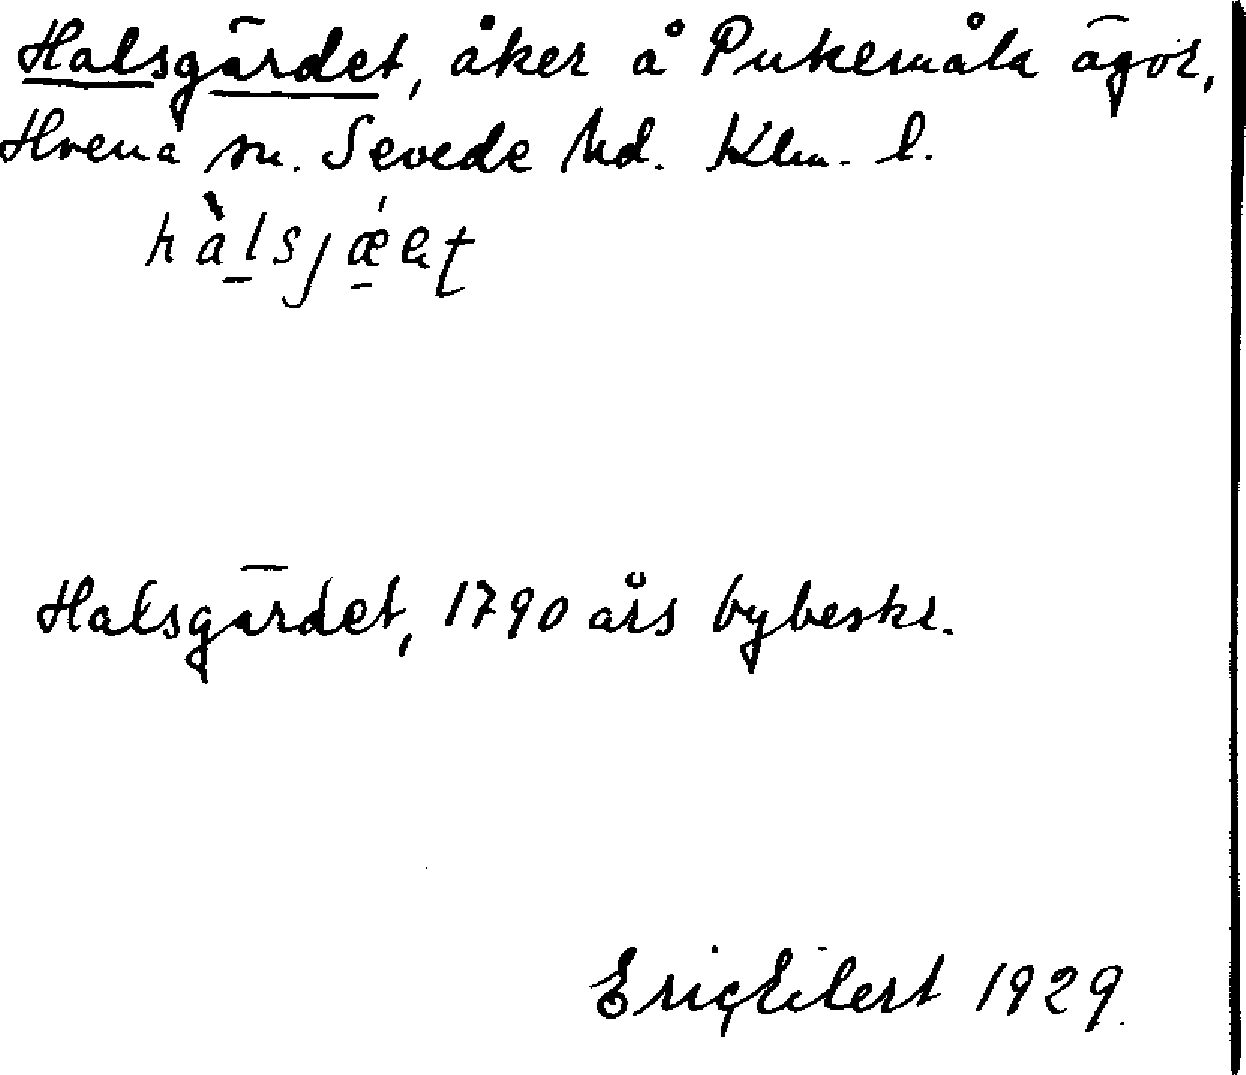 Halsgärdet, åker å Pukemåla ägor,
Hvena sn. Sevede hd. Klm. l.
Halsgärdet, 1790 års bybeskr.
Eric Eilert 1929.